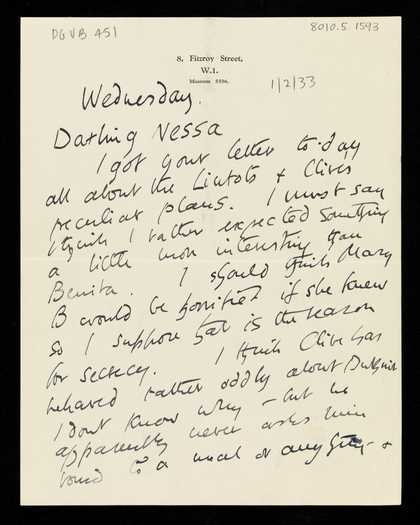 DG VB 451
8010.5.1593
8, Fitzroy Street,
W.1.
Museum
1/2/33
Wednesday.
Darling Nessa
I got your letter to-day
all about the Lintots & Clive's
peculiar plans. I must say
I think I rather expected something
a little more interesting than
Benita. I should think Mary
B would be horrified if she knew
so I suppose that is the reason
for secrecy. I think Clive has
behaved rather oddly about
I dont know why – but he
apparently never asks him
round to a meal or anything – &